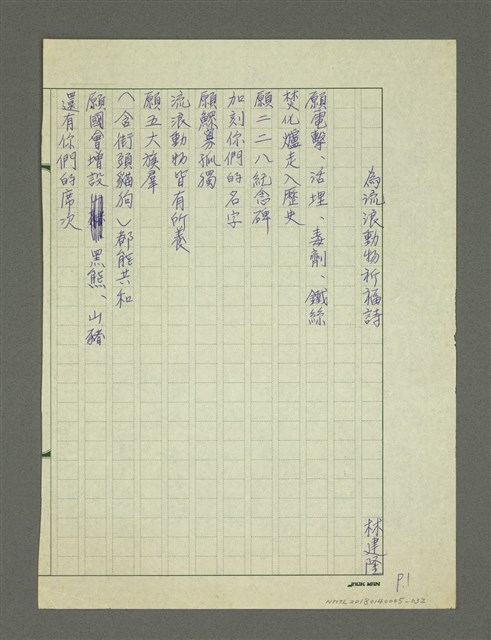 為流浪動物祈福詩
林建隆
願電擊、活埋、毒劑、鐵絲
焚化爐走入歷史
願二二八紀念碑
加刻你們的名字
願鰥寡孤獨
流浪動物皆有所養
願五大族群
（含街頭貓狗）都能共和
願國會增設 黑熊、山豬
還有你們的席次
JACK MAN
P.1
NMTL20180140005-032